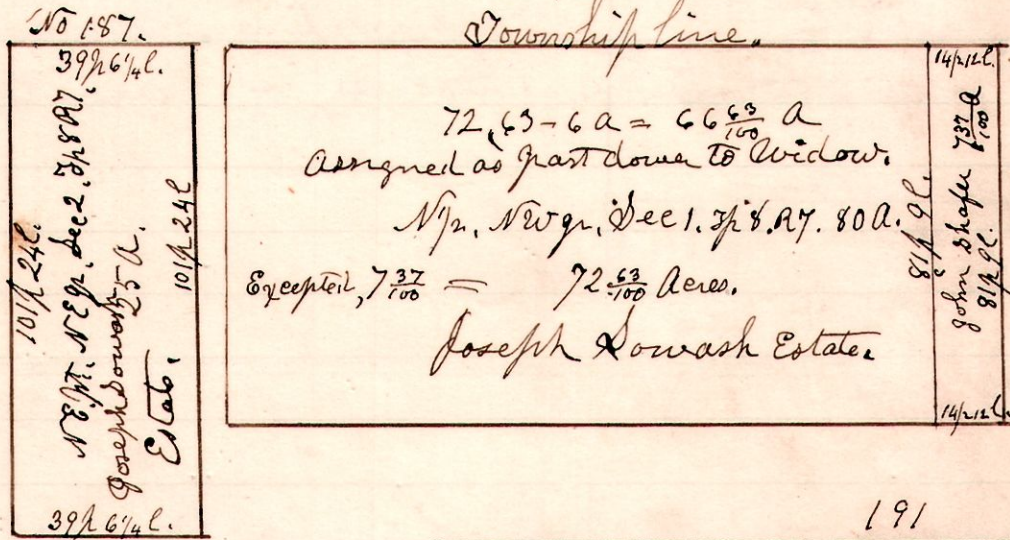 No 187.
Township line.
39p 6¼ l.
101p 24 l.
N E Pt. N E qr. Sec 2. Tp 8 R7.
Joseph Sowash
25 A.
Estate.
101p 24 l
39p 6¼ l.
72.63 - 6 a = 66 63/100 A
Assigned as part dower to Widow.
N pr. N W qr. Sec 1. Tp 8. R7. 80 A.
Excepted, 7 37/100 = 72 63/100 Acres.
Joseph Sowash Estate.
81p 9 l.
14p 12 l.
John Shafer 7 37/100 A
81p 9 l.
14p 12 l.
191